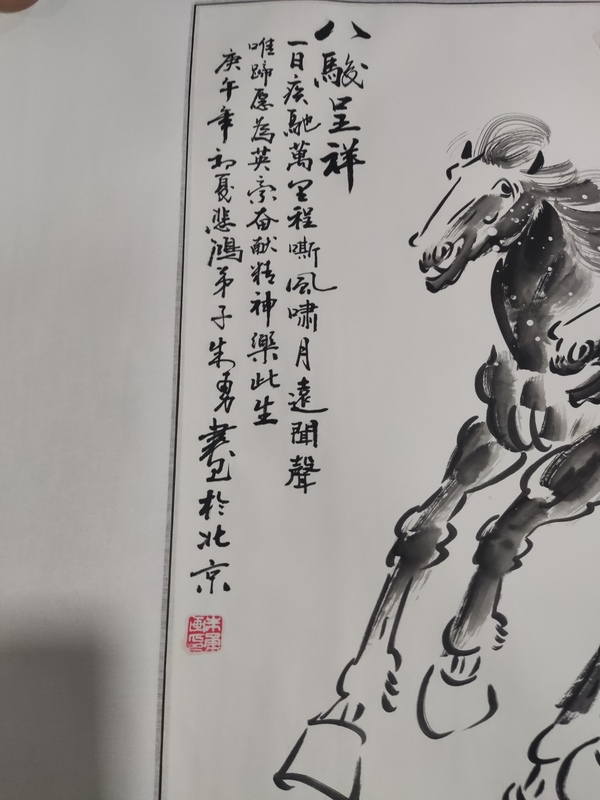 八駿呈祥
一日疾馳萬里程嘶風嘯月遠聞聲
唯蹄愿為英豪奋献精神樂此生
庚午年初夏悲鴻弟子朱勇畫於北京
朱勇画印